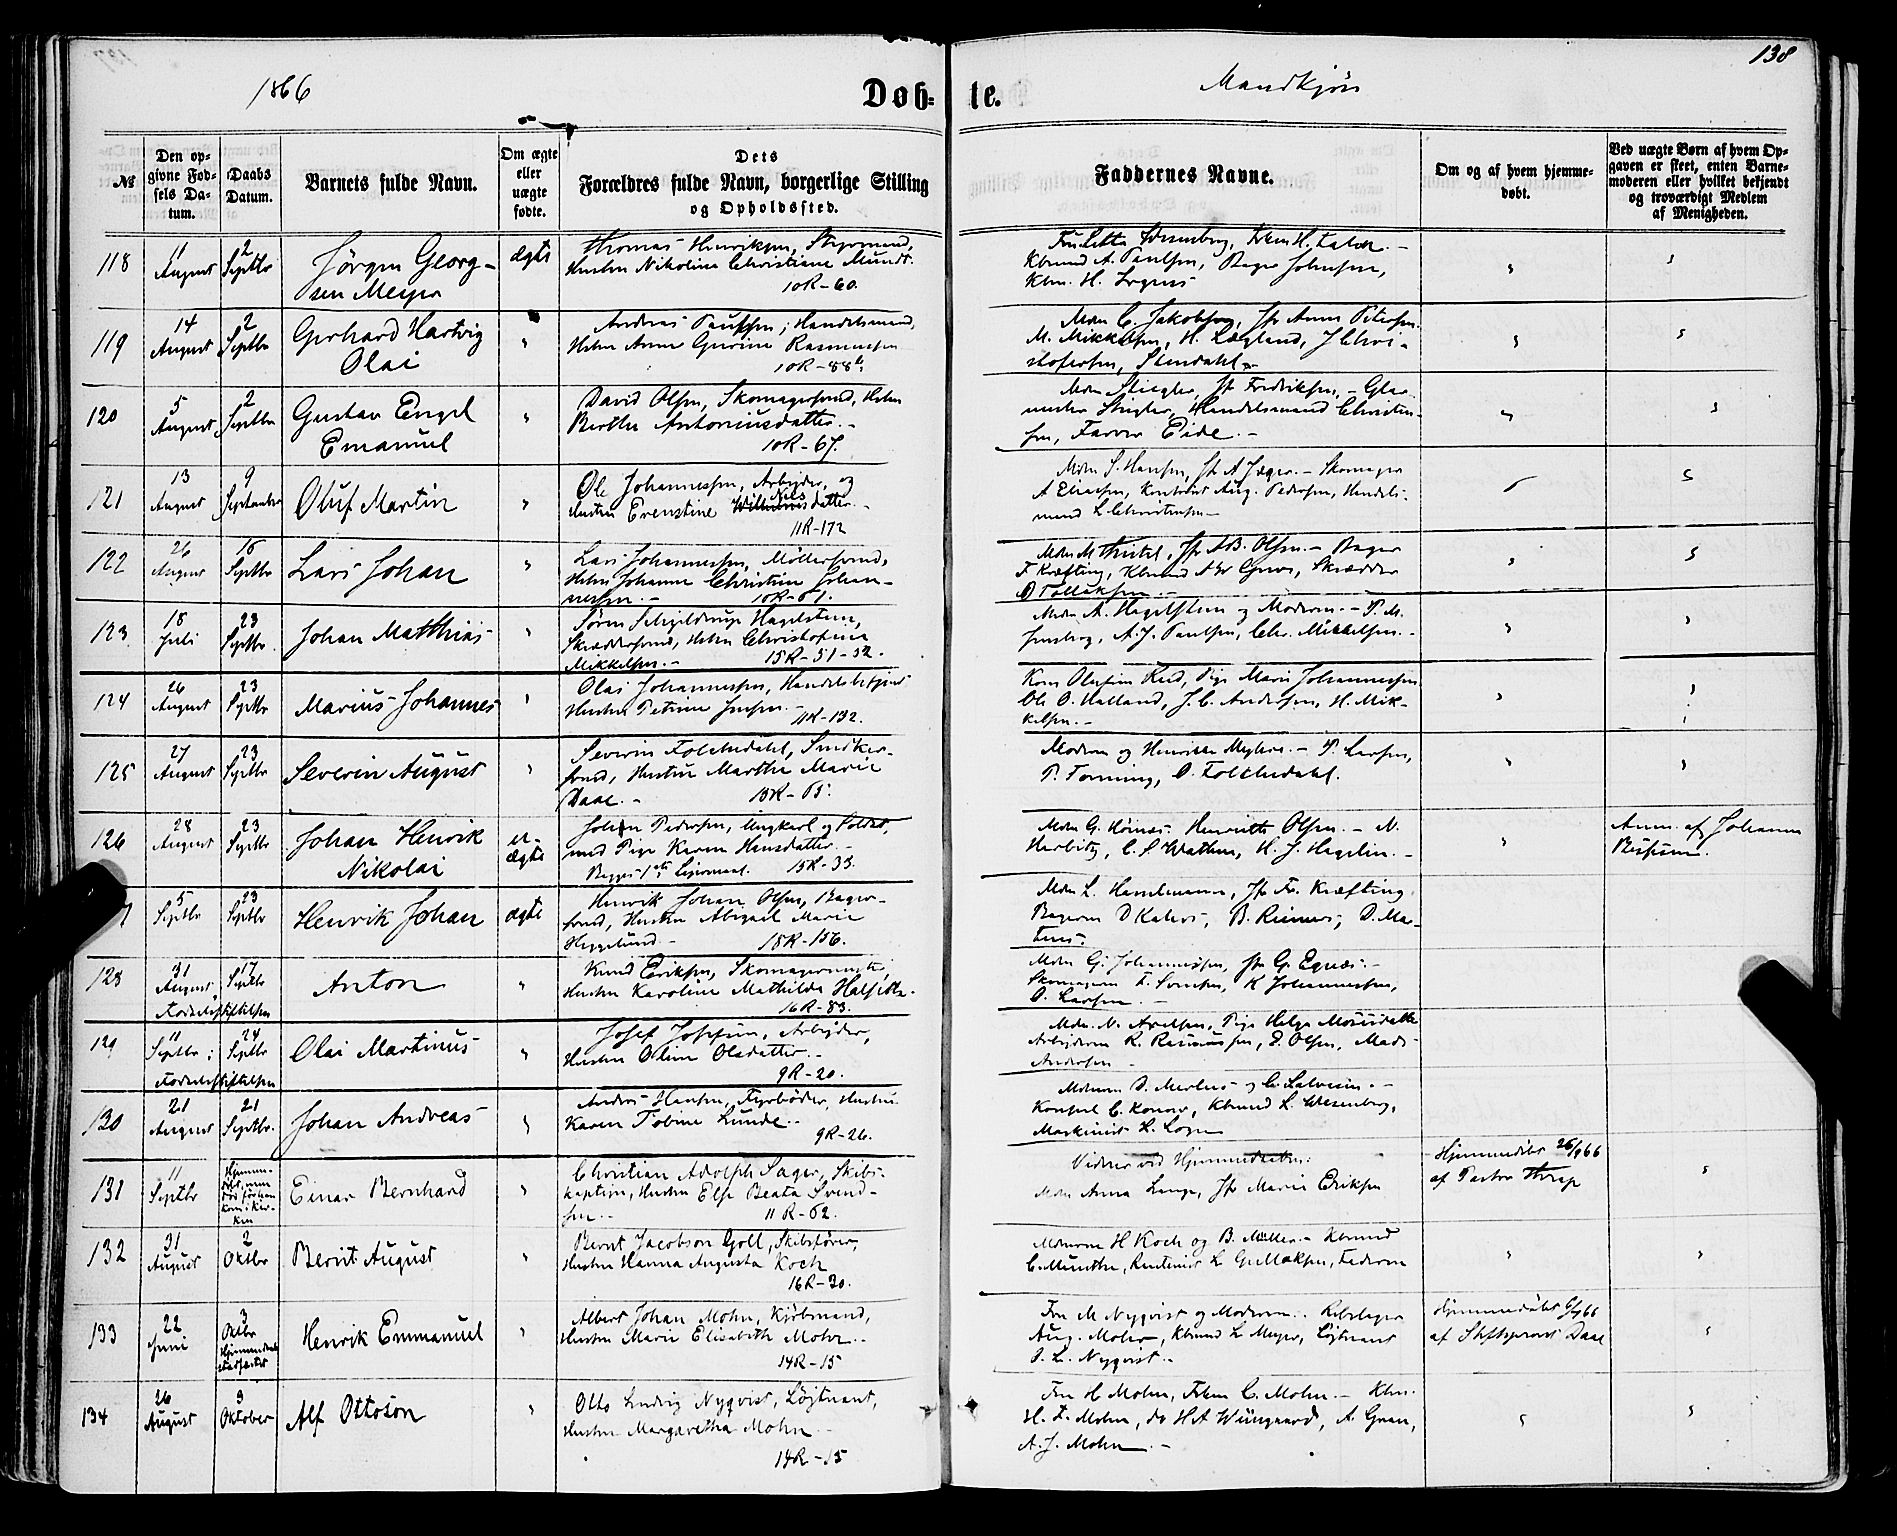 138
1866
Døb-
te.
Mandkjøn
№
Den op-
givne Fød-
sels Da-
tum.
Daabs
Datum.
Barnets fulde Navn.
Om ægte
eller
uægte
fødte.
Dets
Forældres fulde Navn, borgerlige Stilling
og Opholdssted.
Faddernes Navne.
Om og af hvem hjemme-
døbt.
Ved uægte Børn af hvem Op-
gaven er skeet, enten Barne-
moderen eller hvilket bekjendt
og troværdigt Medlem
af Menigheden.
118
11
August
2
Septbr
Jørgen Georg-
sen Meyer
ægte
Thomas Henriksen, Styrmand,
Hustru Nikoline Christiane Mundt.
10R-60.
Kbmnd A. Paulsen, Bager Johnsen,
Kbm. H.
119
14
August
2
Septbr
Gerhard Hartvig
Olai
Andreas Paulsen, Handelsmand,
Hstru Anne Gurine Rasmussen
10R-88
Mdm C. Jakobsen, Jfr Anne Petersen.
M. Mikkelsen, H. Lægland, J Chri-
stofersen, Stendahl.-
120
5
August
2
Septbr
Gustav Engel
Emanuel
David Olsen, Skomagersvend, Hstru
Berthe Antoniusdatter.-
10R-67.
Mdm Stiegler, Jfr Fredriksen,- Glar-
mester Stiegler, Handelsmand Christen-
sen, Farver Eide.-
121
13
August
9
September
Oluf Martin
Ole Johannessen, Arbejder, og
Hustru Erenstine Nilsdatter.-
11R-172
Mdm S. Hansen, Jfr A Jæger.- Skomager
A Eliassen, Kontorist Aug. Pedersen, Handels-
mand L Christensen-
122
26
August
16
Septbr
Lars Johan
Lars Johannessen, Møllersvend,
Hstru Johanne Christine Johan-
nessen.-
Mdm M Thistel, Jfr AB. Olsen.- Bager
F Kræfting, Kbmnd Skrædder
O Tollaksen.-
123
18
Juli
23
Septbr.
Johan Matthias
Søren Schjeldrup Hagelsteen,
Skræddersvend, Hstru Christofine
Mikkelsen.-
15R-51-52.
Mdm A. Hagelsteen og Moderen.- P. M.
Jensberg, A.J. Paulsen, Chr. Mikkelsen.-
124
26
August
23
Septbr
Marius Johannes
Olai Johannessen, Handelsbetjent
Hustru Petrine Jensen.-
11R-132.
Kone Olufine Reed, Pige Marie Johannessen
Ole O. Halland, J. C. Andersen, H. Mik-
kelsen.-
125
27
August
23
Septbr
Severin August
Severin Foldsedahl, Snedker-
svend, Hustru Marthe Marie
Daae.-
15R-65.
Moderen og Henrikke Myhre.- P. Larsen,
P. Forming, O. Foldsedahl.
126
28
August
23
Septbr
Johan Henrik
Nikolai
u-
ægte
Johan Pedersen, Ungkarl og Soldat,
med Pige Karen Hansdatter.-
Begges 1ste Leiermaal.
15R-33.
Mdm G. Hønes. Henriette Olsen.- N.
Herbitz, C. S Wathne, H. J. Hagelin.-
Anm. af Johanne
5
Septbr
23
Septbr
Henrik Johan
ægte
Henrik Johan Olsen, Bager-
svend, Hustru Abigael Marie
Heggelund-
18R-156.
Mdm L. Hanselmann, Jfr Fr. Kræfting.
Bagerne D Kahrs, B. Reimers, D. Mar-
tens.
128
31
August
17
Septbr
Fødselsstiftelsen
Anton
Knud Eriksen, Skomagermester,
Hustru Karoline Mathilde
16R-83.
Mdm G. Johannessen, Jfr G. Egnæs.-
Skomagerne K Johannessen,
O. Larsen.-
129
11
Septbr
24
Septbr
Fødselsstiftelsen
Olai Martinus
Josef Josefsen, Arbejder,
Hustru Oline Olsdatter.-
9R-20.
Mdm. N. Axelsen, Pige Helga Monsdatter
Arbejderne R. Rasmussen, E. Olsen, Mads
Andersen-
130
21
August
21
Septbr.
Johan Andreas
Andreas Hansen, Fyrbøder, Hustru
Karen Tobine Lunde.-
9R-26.
Mdmme D. Mertens og C. Salvesen.-
Konsul C. Konow, Kbmnd L. Wesenberg,
Maskinist L.
131
11
Septbr
Hjemme-
døbt, men
død før han
kom i Kir-
ken
Einar Bernhard
Christian Adolph Sager, Skibs-
kaptein, Hustru Else Beata Svend-
sen.-
11R-62.
Vidner ved Hjemmedaaben:
Mdm Anna Lange, Jfr Marie Eriksen
Hjemmedøbt 26/9 66
af Pastor
132
31
August
2
Oktbr
Bernt August
Bernt Jacobson Goll, Skibsfører,
Hustru Hanna Augusta Koch
16R-30.
Mdmme H Koch og B. Müller.- Kbmnd
C. Münthe, Rentenist L Faderen
133
22
Juni
3
Oktbr
Henrik Emmanuel
Albert Johan Mohn, Kjøbmand,
Hustru Marie Elisabeth Mohn.-
14R-15
Fru M Nyqvist og Moderen.- Rebslager
Aug. Mohr, Kbmnd L Meyer, Løjtnant
O. L. Nyqvist.-
Hjemmedøbt 6/7 66
af Stiftsprovst Daae
134
26
August
3
Oktober
Alf Ottoson
Otto Ludvig Nyqvist, Løjtnant,
Hustru Margaretha Mohn.-
14R-15
Fru H Mohn, Frkn C. Mohn.- Kbm.
H. F. Mohn, do H A Wiingaard, A. Gran,
A. J. Mohn.-